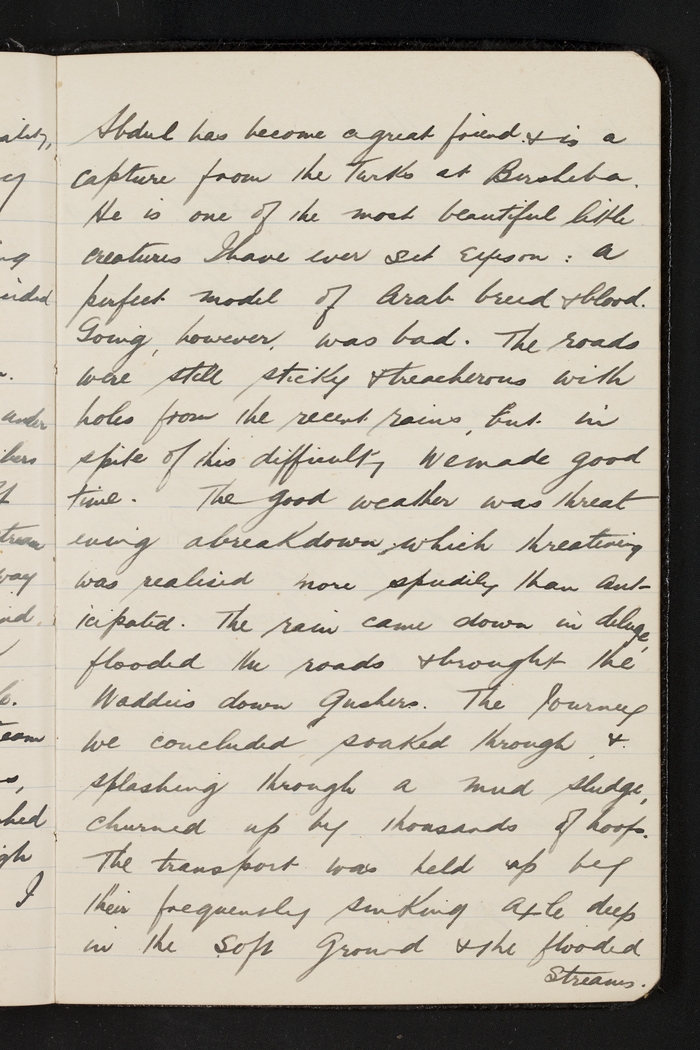 Abdul has become a great friend & is a
capture from the Turks at Birsheba.
He is one of the most beautiful little
creatures I have ever set eyes on : a
perfect model of Arab breed & blood.
Going, however, was bad. The roads
were still sticky & treacherous with
holes from the recent rains, but in
spite of this difficulty We made good
time. The good weather was threat
ening a breakdown, which threatening
was realised more speedily than ant-
icipated. The rain came down in deluge,
flooded the roads & brought the
Waddies down Gushers. The Journey
we concluded soaked through &
splashing through a mud sludge,
churned up by thousands of hoofs.
The transport was held up by
their frequently sinking axle deep
in the soft Ground & the flooded
Streams.
ality,
ng
under
stream
way
team
I